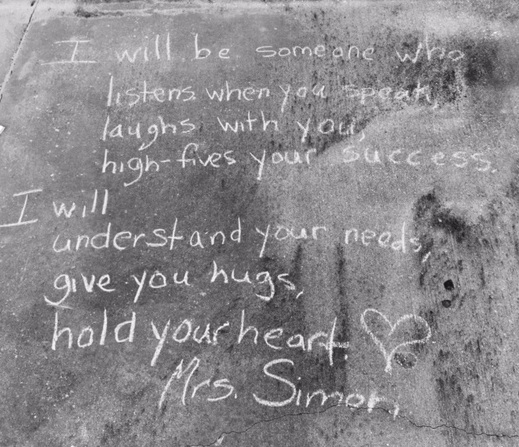 I will be someone who
listens when you speak,
laughs with you,
high-fives your success.
I will
understand your needs,
give you hugs,
hold your heart.
Mrs. Simon